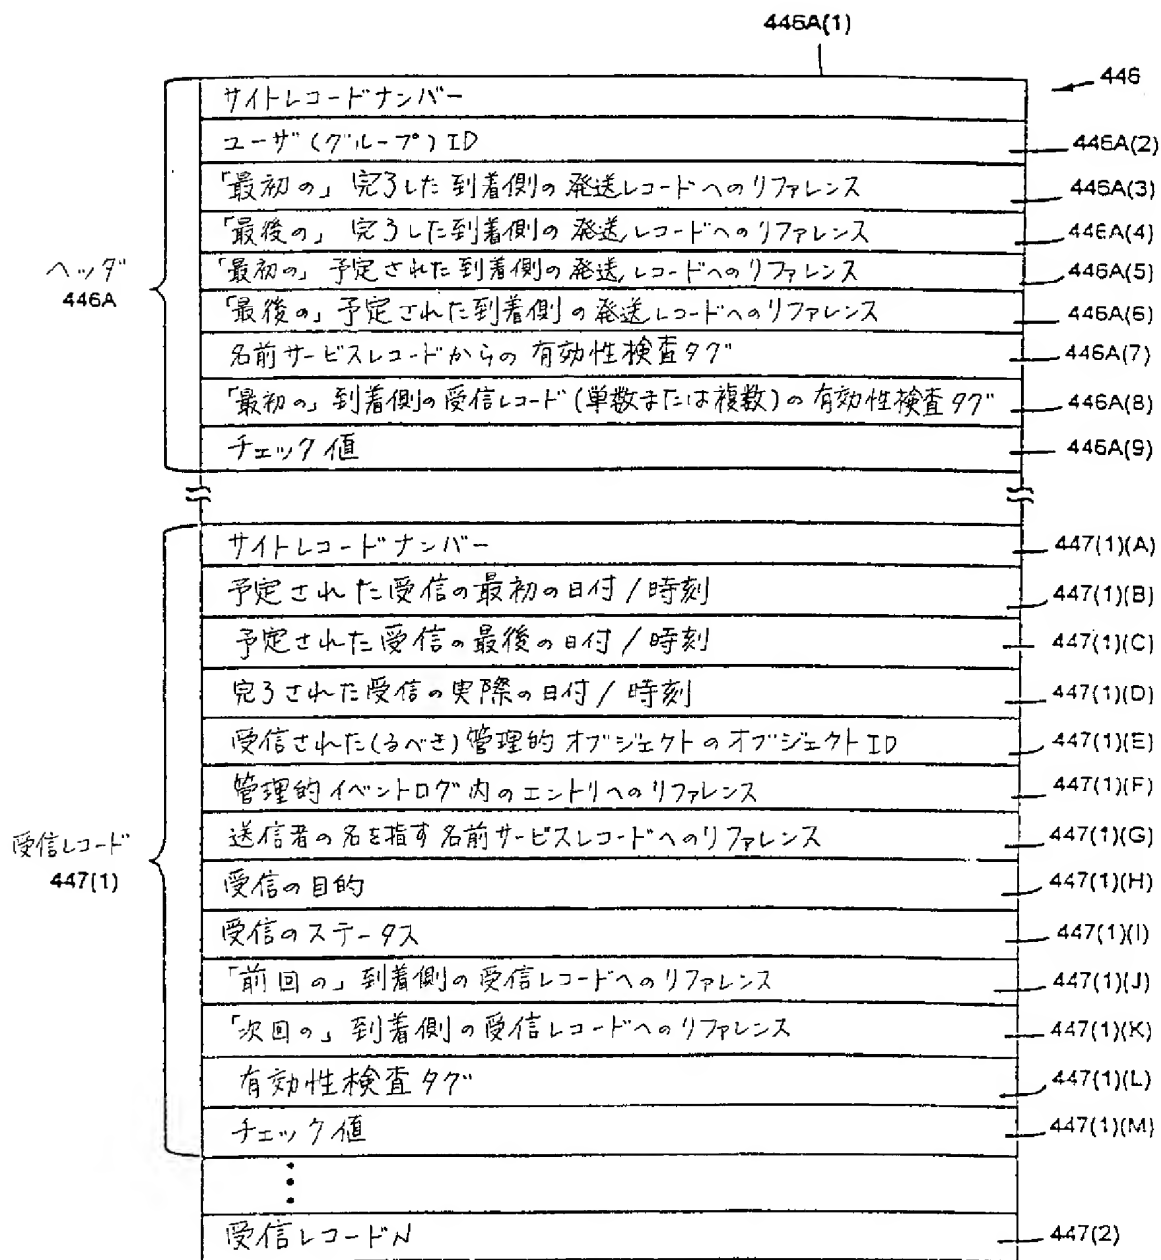 446A(1)
446
サイトレコードナンバー
ユーザ(グループ)ID 446A(2)
「最初の」完了した到着側の発送レコードへのリファレンス 446A(3)
「最後の」完了した到着側の発送レコードへのリファレンス 446A(4)
「最初の」予定された到着側の発送レコードへのリファレンス 446A(5)
「最後の」予定された到着側の発送レコードへのリファレンス 446A(6)
ヘッダ
446A
名前サービスレコードからの有効性検査タグ 446A(7)
「最初の」到着側の受信レコード(単数または複数)の有効性検査タグ 446A(8)
チェック値 446A(9)
サイトレコードナンバー 447(1)(A)
予定された受信の最初の日付/時刻 447(1)(B)
予定された受信の最後の日付/時刻 447(1)(C)
完了された受信の実際の日付/時刻 447(1)(D)
受信された(るべき)管理的オブジェクトのオブジェクトID 447(1)(E)
管理的イベントログ内のエントリへのリファレンス 447(1)(F)
送信者の名を指す名前サービスレコードへのリファレンス 447(1)(G)
受信レコード
447(1)
受信の目的 447(1)(H)
受信のステータス 447(1)(I)
「前回の」到着側の受信レコードへのリファレンス 447(1)(J)
「次回の」到着側の受信レコードへのリファレンス 447(1)(K)
有効性検査タグ 447(1)(L)
チェック値 447(1)(M)
受信レコードN 447(2)